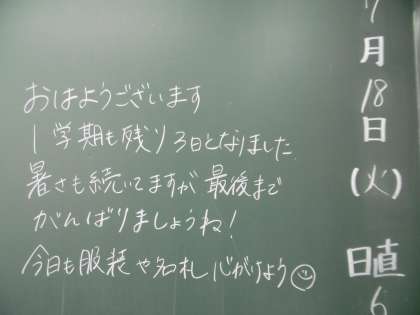 おはようございます
1学期も残り3日となりました
暑さも続いてますが最後まで
がんばりましょうね!
今日も服装や名札心がけよう☺
7月18日(火)
日直
6